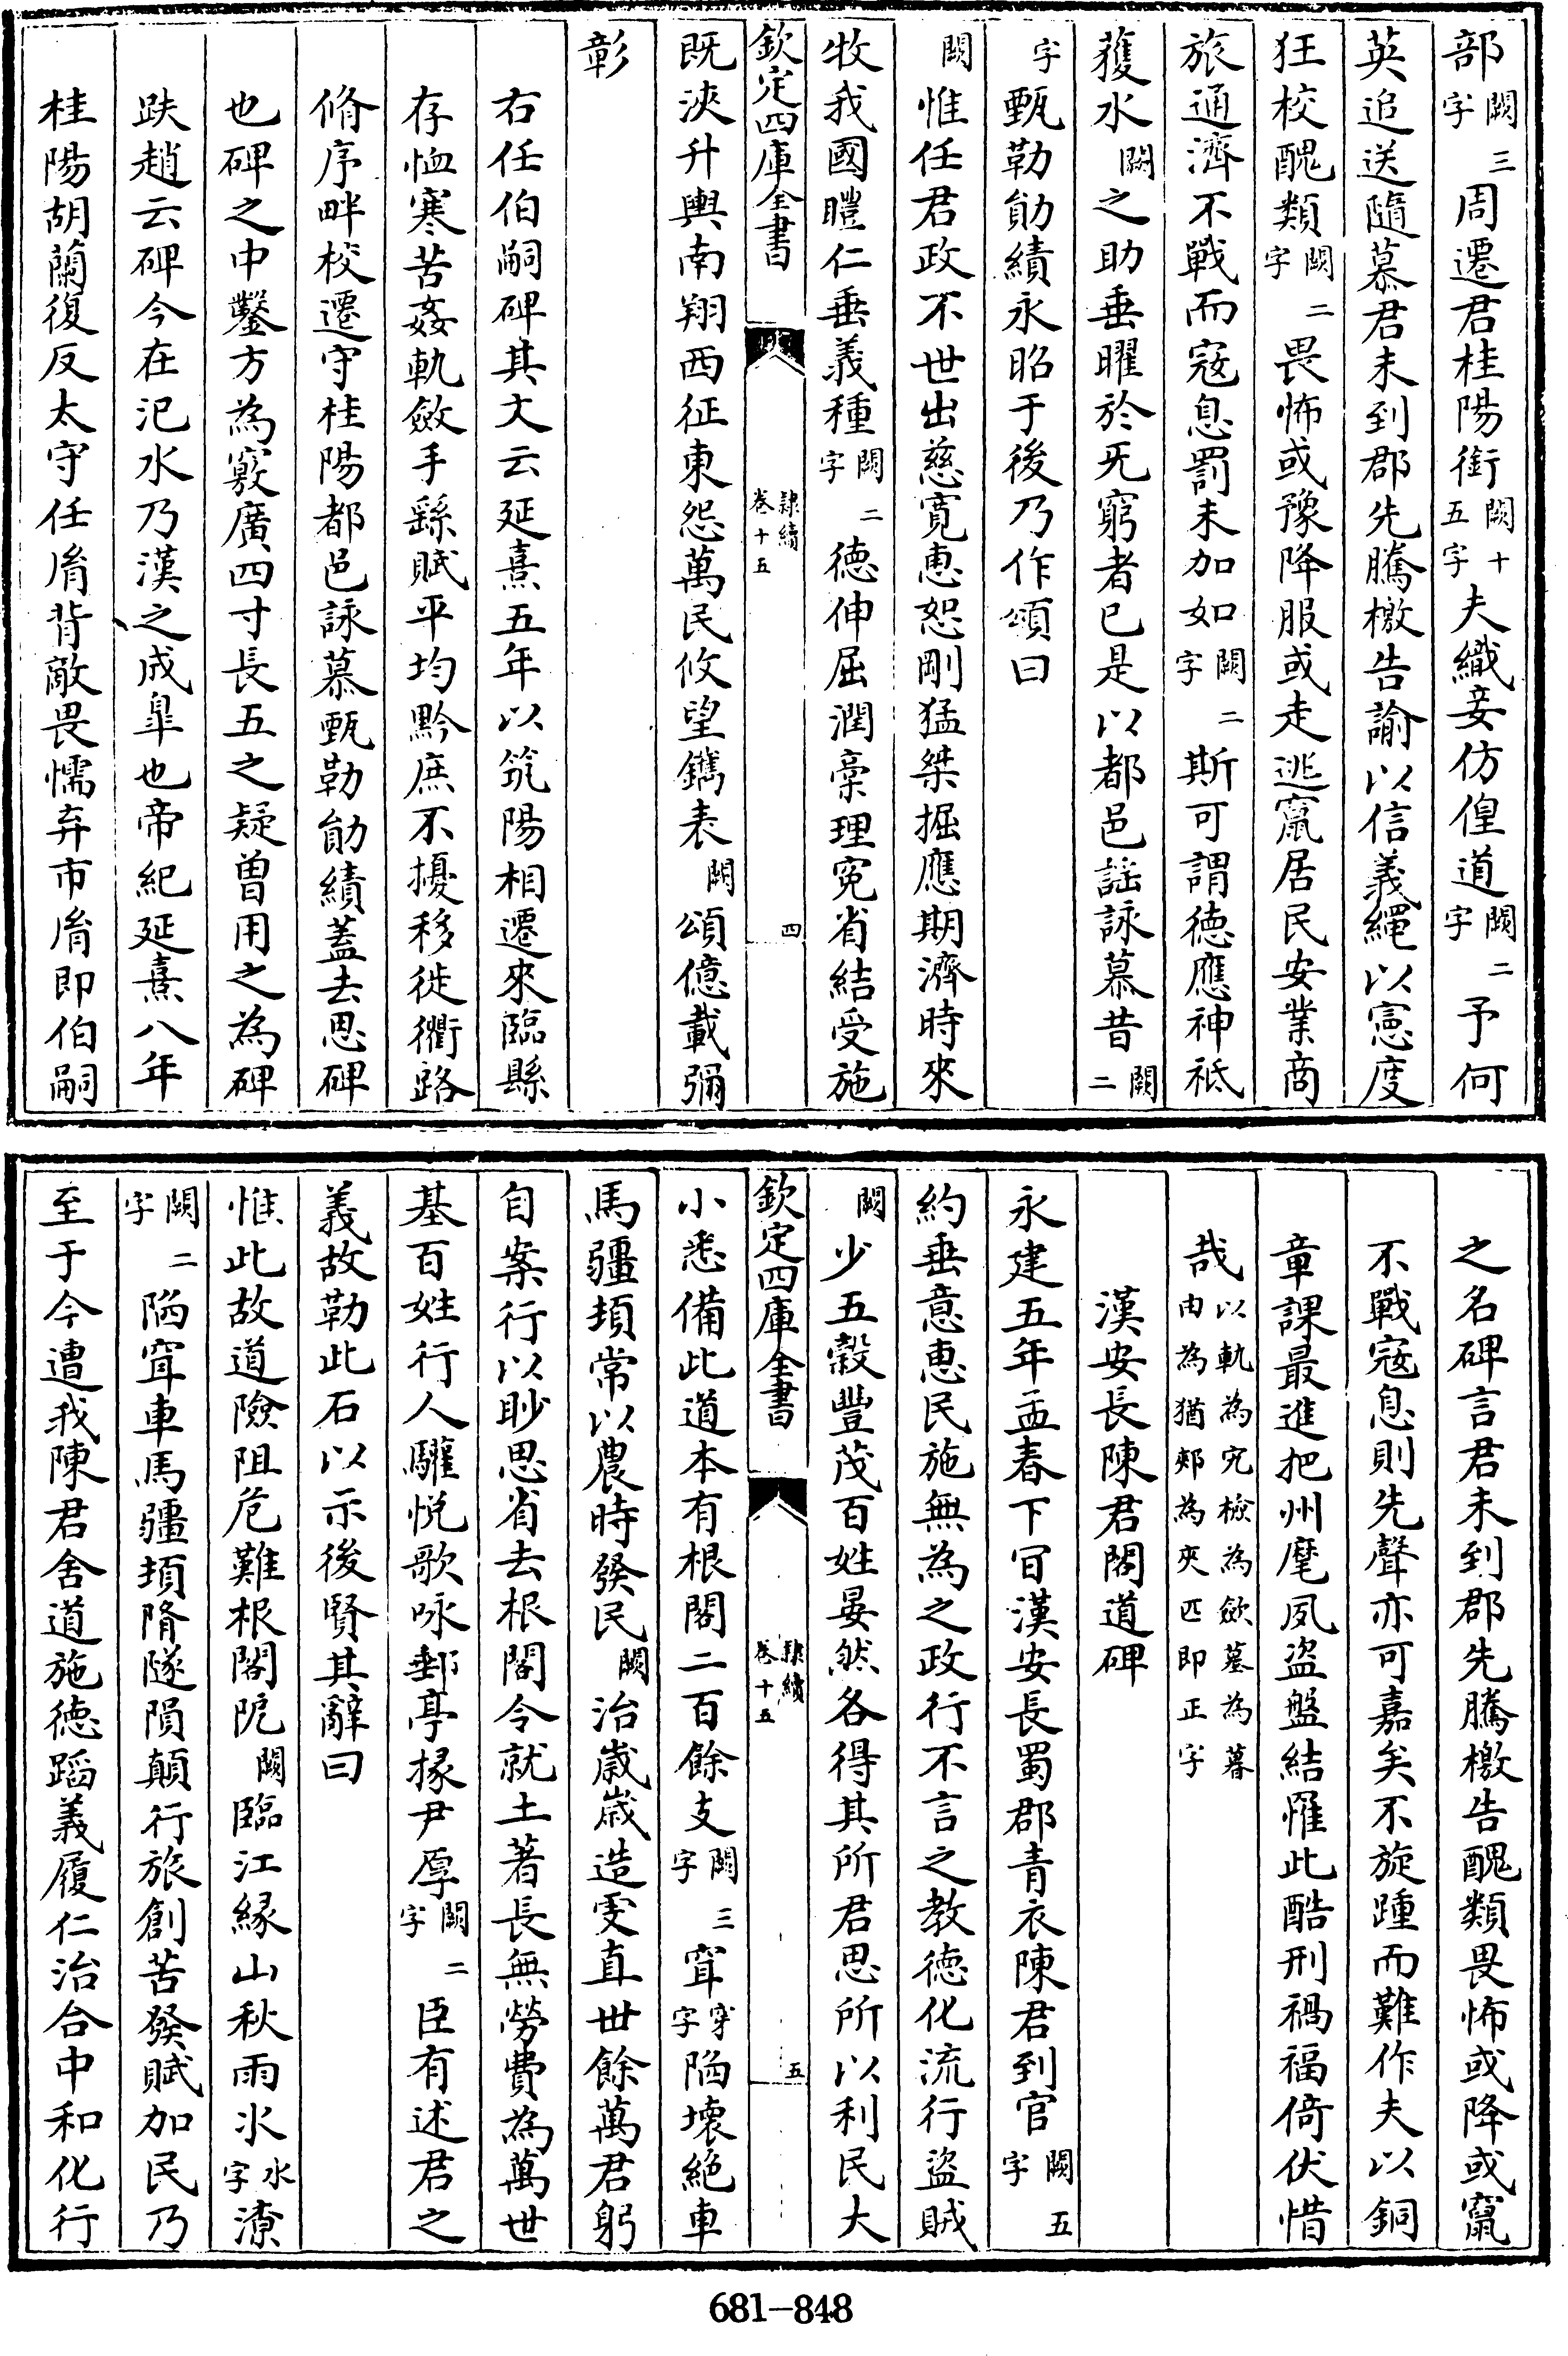 部闕三字周遷君桂陽銜闕十五字夫織妾仿偟道闕二字予何
英追送隨慕君未到郡先騰檄告諭以信義繩以憲度
狂校醜類闕二字畏怖或豫降服或走逃竄居民安業商
旅通濟不戰而寇息罰未加如闕二字斯可謂德應神祇
獲水闕之助垂曜於无窮者已是以都邑謡詠慕昔闕二
字甄勒勛績永昭于後乃作頌曰
闕惟任君政不世出慈寛恵恕剛猛桀掘應期濟時來
牧我國曀仁垂義種闕二字德伸屈潤槀理寃省結受施
欽定四庫全書
隸續
卷十五
四
既浹升輿南翔西征東怨萬民攸望鐫表闕頌億載彌
彰
右任伯嗣碑其文云延熹五年以筑陽相遷來臨縣
存恤寒苦姦軌斂手繇賦平均黔庶不擾移徙衢路
脩序畔校遷守桂陽都邑詠慕甄勒勛績蓋去思碑
也碑之中鑿方為竅廣四寸長五之疑曽用之為碑
趺趙云碑今在汜水乃漢之成臯也帝紀延熹八年
桂陽胡蘭復反太守任胤背敵畏懦弃市胤即伯嗣
之名碑言君未到郡先騰檄告醜類畏怖或降或竄
不戰寇息則先聲亦可嘉矣不旋踵而難作夫以銅
章課最進把州麾夙盜盤結罹此酷刑禍福倚伏惜
哉以軌為宄檢為斂墓為暮由為猶郟為夾匹即正字
漢安長陳君閣道碑
永建五年孟春下㫖漢安長蜀郡青衣陳君到官闕五字
約垂意惠民施無為之政行不言之教德化流行盜賊
闕少五穀豐茂百姓晏然各得其所君思所以利民大
欽定四庫全書
隸續
卷十五
五
小悉備此道本有根閣二百餘支闕三字穿字陷壞絶車
馬疆頓常以農時發民闕治歲歲造雯直世餘萬君躬
自案行以眇思省去根閣令就土著長無勞費為萬世
基百姓行人驩悦歌咏郵亭掾尹厚闕二字臣有述君之
義故勒此石以示後賢其辭曰
惟此故道險阻危難根閣阸闕臨江縁山秋雨氷水字潦
闕二字陷穿車馬疆頓隋隧隕顛行旅創苦發賦加民乃
至于今遭我陳君舍道施徳蹈義履仁治合中和化行
681-848